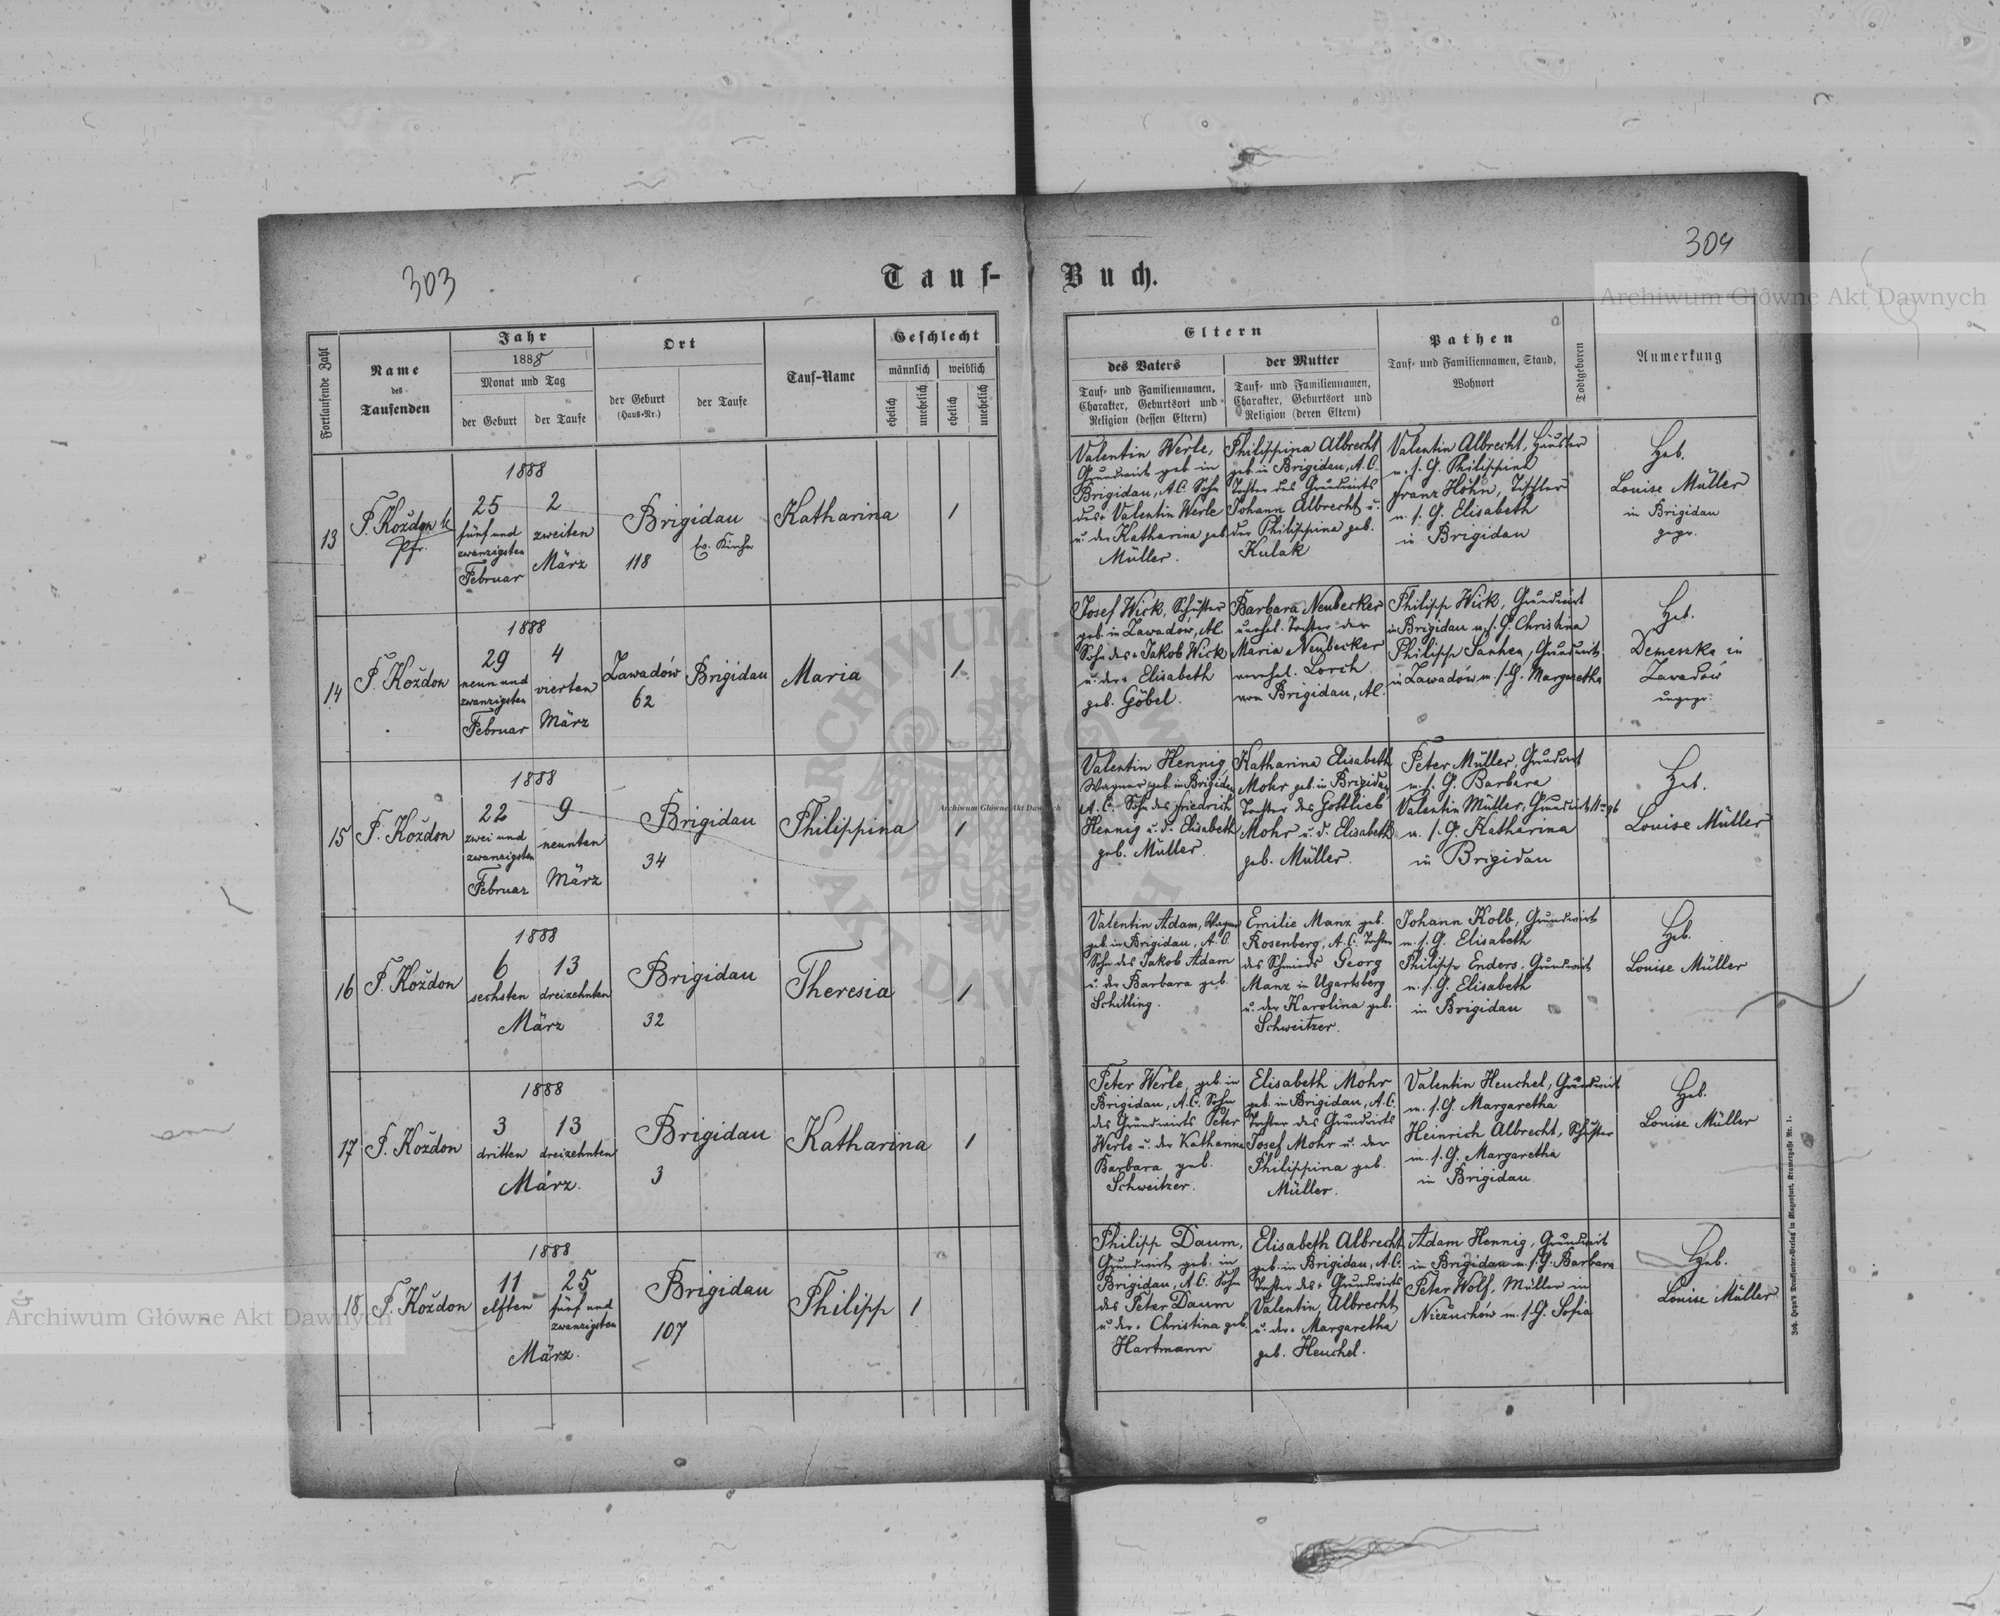 303
304
Tauf-
Buch.
Fortlaufende Zahl
Name
des
Taufenden
Jahr
1888
Monat und Tag
der Geburt
der Taufe
Ort
der Geburt
(Haus-Nr.)
der Taufe
Tauf-Name
Geschlecht
männlich
weiblich
ehelich
unehelich
ehelich
unehelich
Eltern
des Vaters
Tauf- und Familiennamen,
Charakter, Geburtsort und
Religion (dessen Eltern)
der Mutter
Tauf- und Familiennamen,
Charakter, Geburtsort und
Religion (deren Eltern)
Pathen
Tauf- und Familiennamen, Stand,
Wohnort
Todtgeboren
Anmerkung
13
F. Koždon
Pfr.
1888
25
fünf und
zwanzigsten
Februar
2
zweiten
März
Brigidau
118
Ev. Kirche
Katharina
1
Valentin Werle,
Grundwirt geb in
Brigidau, A.C. Sohn
des + Valentin Werle
u. der Katharina geb
Müller.
Philippina Albrecht
geb. in Brigidau, A.C.
Tochter des Grundwirts
Johann Albrecht u.
der Philippina geb.
Kulak
Valentin Albrecht, Häusler
u. s. G. Philippina
Franz Höhn, Tischler
u. s. G. Elisabeth
in Brigidau
Heb.
Louise Müller
in Brigidau
gepr.
14
F. Koždon
1888
29
neun und
zwanzigsten
Februar
4
vierten
März
Zawadów
62
Brigidau
Maria
1
Josef Wick, Schuster
geb. in Zawadow, AC.
Sohn des + Jakob Wick
u. der + Elisabeth
geb. Göbel.
Barbara Neubecker
unehel. Tochter der
Maria Neubecker
verehel. Lorch
von Brigidau, AC.
Philipp Wick, Grundwirt
in Brigidau u. s. G. Christina
Philipp, Grundwirt
in Zawadów u. s. G. Margaretha
Heb.
Demeszka in
Zawadów
ungepr.
15
F. Koždon
1888
22
zwei und
zwanzigsten
Februar
9
neunten
März
Brigidau
34
Philippina
1
Valentin Hennig
Wagner geb. in Brigidau
A.C. Sohn des Friedrich
Hennig u. d. Elisabeth
geb. Müller
Katharina Elisabeth
Mohr geb. in Brigidau
Tochter des Gottlieb
Mohr u. d. Elisabeth
geb. Müller.
Peter Müller, Grundwirt
u. s. G. Barbara
Valentin Müller, Grundwirt
u. s. G. Katharina
in Brigidau
Heb.
Louise Müller
16
F. Koždon
1888
6
sechsten
13
dreizehnten
März
Brigidau
32
Theresia
1
Valentin Adam, Wagner
geb. in Brigidau, A.C.
Sohn des Jakob Adam
u. der Barbara geb.
Schilling.
Emilie Manz geb.
Rosenberg, A.C. Tochter
des Schmieds Georg
Manz in Ugartsberg
u. der Karolina geb.
Schweitzer.
Johann Kolb, Grundwirt
u. s. G. Elisabeth
Philipp Enders, Grundwirt
u. s. G. Elisabeth
in Brigidau
Heb.
Louise Müller
17
F. Koždon
1888
3
dritten
13
dreizehnten
März.
Brigidau
3
Katharina
1
Peter Werle, geb. in
Brigidau, A.C. Sohn
des Grundwirts Peter
Werle u. der Katharina
Barbara geb.
Schweitzer.
Elisabeth Mohr
geb. in Brigidau, A.C.
Tochter des Grundwirts
Josef Mohr u. der
Philippina geb.
Müller.
Valentin Heuchel, Grundwirt
u. s. G. Margaretha
Heinrich Albrecht, Schuster
u. s. G. Margaretha
in Brigidau
Heb.
Louise Müller
18
F. Koždon
1888
11
elften
25
fünf und
zwanzigsten
März.
Brigidau
107
Philipp
1
Philipp Daum,
Grundwirt geb. in
Brigidau, A.C. Sohn
des Peter Daum
u. der + Christina geb.
Hartmann
Elisabeth Albrecht
geb. in Brigidau, A.C.
Tochter des + Grundwirts
Valentin Albrecht
u. der + Margaretha
geb. Heuchel.
Adam Hennig, Grundwirt
in Brigidau u. s. G. Barbara
Peter Wolf, Müller in
Niezuchów u. s. G. Sofia
Heb.
Louise Müller
Archiwum Główne Akt Dawnych
Archiwum Główne Akt Dawnych
Archiwum Główne Akt Dawnych